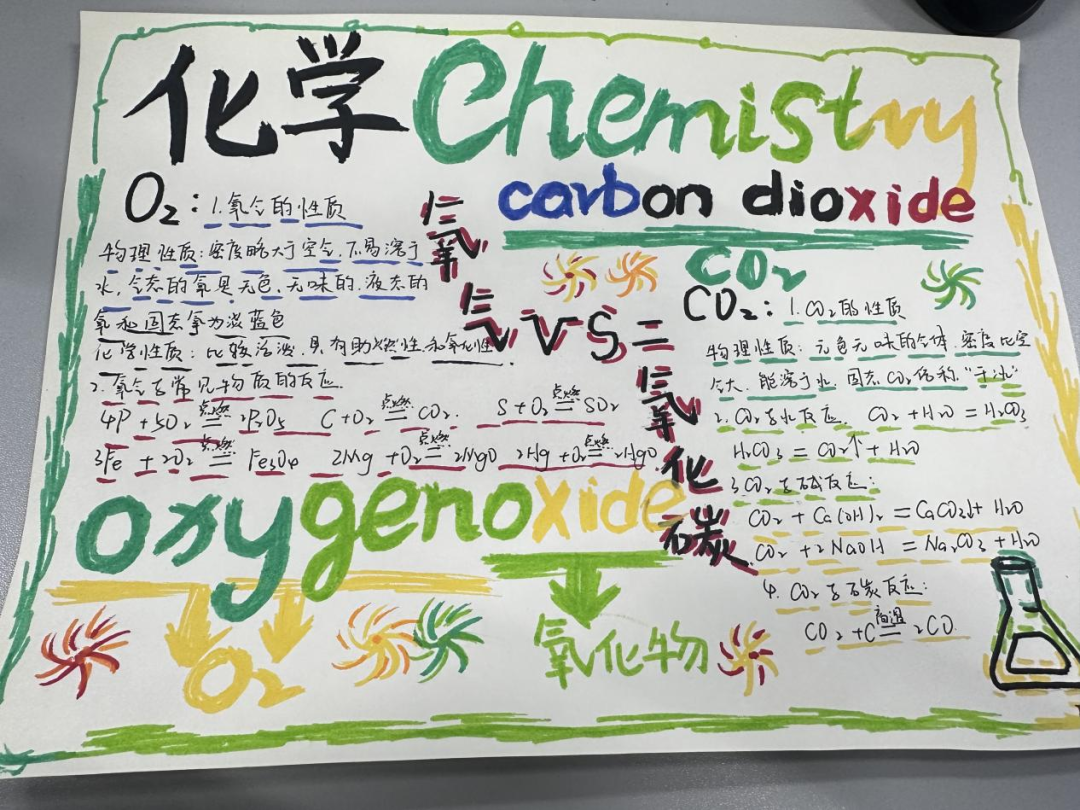 化学Chemistry
carbon dioxide
O₂：1.氧气的性质
物理性质：密度略大于空气，不易溶于
水，气态的氧是无色，无味的，液态的
氧和固态氧为淡蓝色
化学性质：比较活泼，具有助燃性和氧化性
2.氧气与常见物质的反应
4P + 5O₂ 点燃= 2P₂O₅ C+O₂ 点燃= CO₂ S+O₂ 点燃= SO₂
3Fe + 2O₂ 点燃= Fe₃O₄ 2Mg+O₂ 点燃= 2MgO 2Hg+O₂ 点燃= 2HgO
氧气VS二氧化碳
CO₂
CO₂：1.CO₂的性质
物理性质：无色无味的气体，密度比空
气大，能溶于水，固态CO₂俗称“干冰”
2.CO₂与水反应 CO₂+H₂O=H₂CO₃
H₂CO₃=CO₂↑+H₂O
3.CO₂与碱反应：
CO₂+Ca(OH)₂=CaCO₃↓+H₂O
CO₂+2NaOH=Na₂CO₃+H₂O
4.CO₂与石炭反应：
CO₂+C 高温= 2CO
oxygenoxide
O₂
氧化物